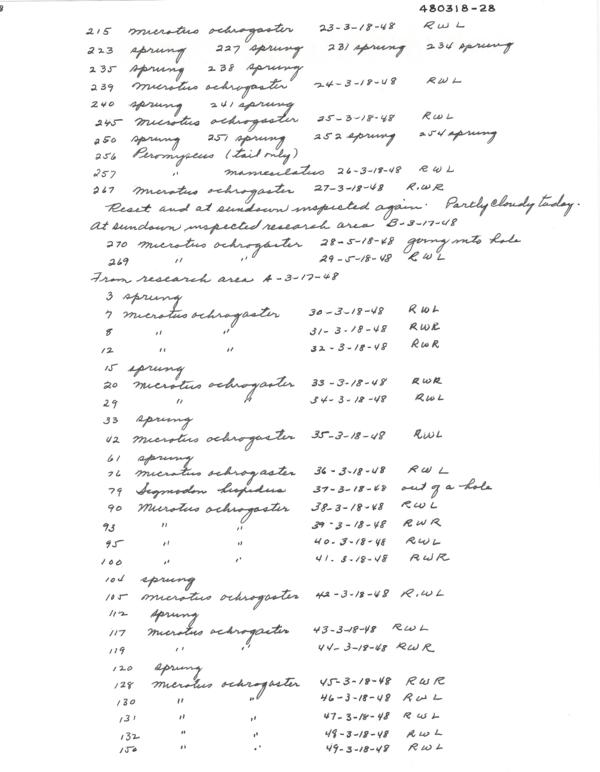 480318-28
215 microtus ochrogaster 23-3-18-48 RWL
223 sprung 227 sprung 231 sprung 234 sprung
235 sprung 238 sprung
239 microtus ochrogaster 24-3-18-48 RWL
240 sprung 241 sprung
245 microtus ochrogaster 25-3-18-48 RWL
250 sprung 251 sprung 252 sprung 254 sprung
256 Peromyscus (tail only)
257 " maniculatus 26-3-18-48 RWL
267 microtus ochrogaster 27-3-18-48 R.WR
Reset and at sundown inspected again. Partly cloudy today.
At sundown inspected research area B-3-17-48
270 microtus ochrogaster 28-5-18-48 going into hole
269 " " 29-5-18-48 RWL
From research area A-3-17-48
3 sprung
7 microtus ochrogaster 30-3-18-48 RWL
8 " " 31-3-18-48 RWR
12 " " 32-3-18-48 RWR
15 sprung
20 microtus ochrogaster 33-3-18-48 RWR
29 " " 34-3-18-48 RWL
33 sprung
42 microtus ochrogaster 35-3-18-48 RWL
61 sprung
76 microtus ochrogaster 36-3-18-48 RWL
79 Sigmodon hispidus 37-3-18-48 out of a hole
90 Microtus ochrogaster 38-3-18-48 RWL
93 " " 39-3-18-48 RWR
95 " " 40-3-18-48 RWL
100 " " 41-3-18-48 RWR
104 sprung
105 microtus ochrogaster 42-3-18-48 R.WL
112 sprung
117 microtus ochrogaster 43-3-18-48 RWL
119 " " 44-3-18-48 RWR
120 sprung
128 microtus ochrogaster 45-3-18-48 RWR
130 " " 46-3-18-48 RWL
131 " " 47-3-18-48 RWL
132 " " 48-3-18-48 RWL
150 " " 49-3-18-48 RWL